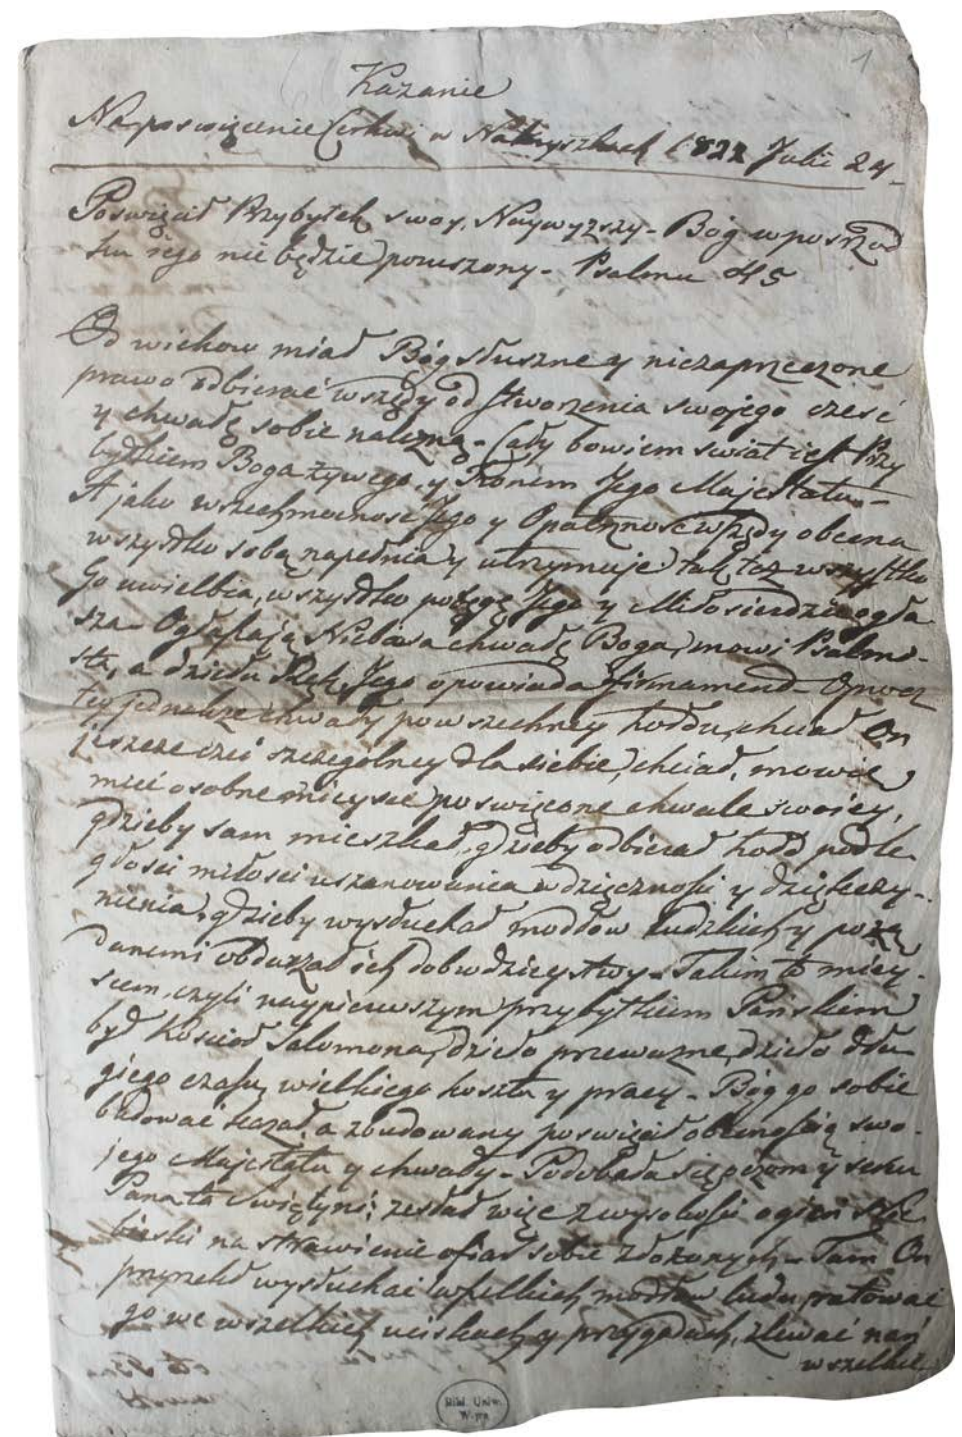 1
Kazanie
Na poswięcenie Cerkwi w Nakryszkach 1822 Julii 24 -
Poswięcił Przybytek swoy, Naywyzszy - Bóg w posrzod
ku iego nie będzie poruszony - Psalmu 45
Od wiekow miał Bóg słuszne y niezaprzeczone
prawo odbierać wszędy od stworzenia swojego cześć
y chwałę sobie należną - Cały bowiem swiat iest Przy
bytkiem Boga żywego, y Tronem Jego Majestatu -
A jako wszechmocność Jego y Opatrzność wszędy obecna
wszystko sobą napełnia y utrzymuje tak też wszystko
Go uwielbia, wszystko potęgę Jego y Miłosierdzie ogła
sza - Ogłaszają Niebiosa chwałę Boga, mowi Psalmi-
sta, a dzieła Rąk Jego opowiada firmament - Oprocz
tey jednakże chwały powszechney hołdu, chciał On
jeszcze czci szczegolney dla siebie, chciał, mowię
mieć osobne mieysce poswięcone chwale swoiey,
gdzieby sam mieszkał, gdzieby odbierał hołd podle
głości miłosci uszanowania wdzięczności y dziękczy-
nienia, gdzieby wysłuchał modłow ludzkich y pożą
danemi obdarzał ich dobrodzieystwy - Takim to miey-
scem, czyli naypierwszym przybytkiem Pańskiem
był Kościoł Salomona, dzieło przeważne, dzieło dłu
giego czasu, wielkiego kosztu y pracy - Bóg go sobie
budować kazał, a zbudowany poswięcił obecnością swo-
jego Majestatu y chwały - Podobała się oczom y sercu
Pana ta Swiętyni; zesłał więc z wysokości ogień Nie
bieski na strawienie ofiar sobie złożonych - Tam On
przyrzekł wysłuchać wszelkich modłow ludu, ratować
go we wszelkich uciskach y przygodach, zlewać nań
wszelkie
Bibl. Uniw.